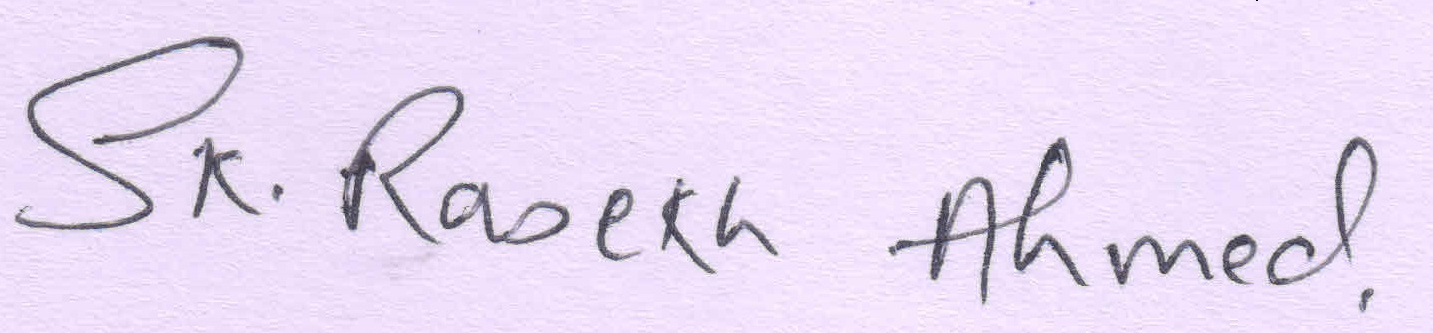 Sk. Rasekh Ahmed.